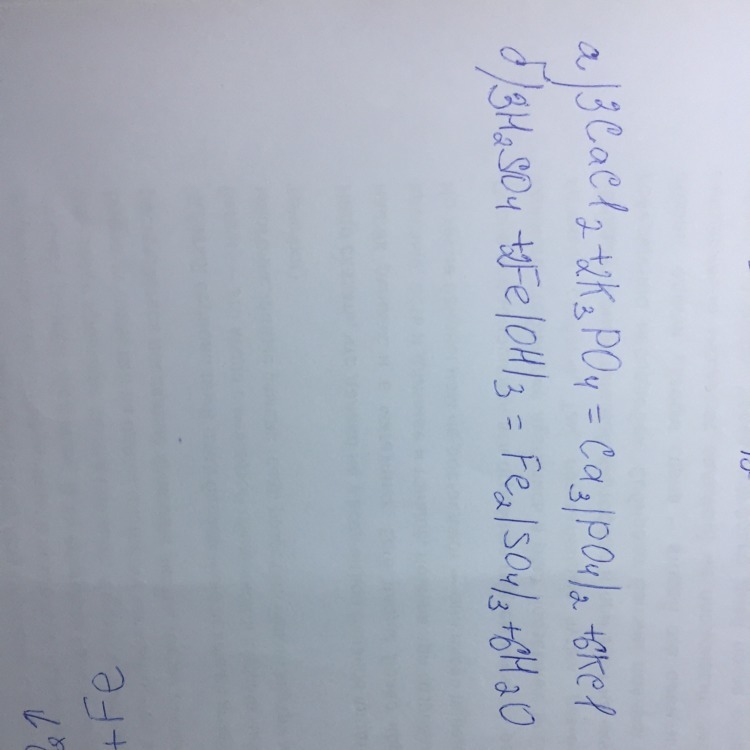 а) 3CaCl₂ + 2K₃PO₄ = Ca₃(PO₄)₂ + 6KCl
б) 3H₂SO₄ + 2Fe(OH)₃ = Fe₂(SO₄)₃ + 6H₂O